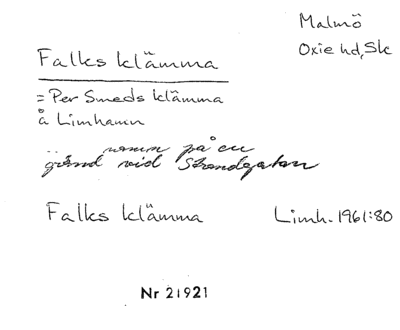 Malmö
Oxie hd, Sk
Falks klämma
= Per Smeds klämma
å Limhamn
namn på en
gränd vid Strandgatan
Falks klämma
Limh. 1961:80
Nr 21921